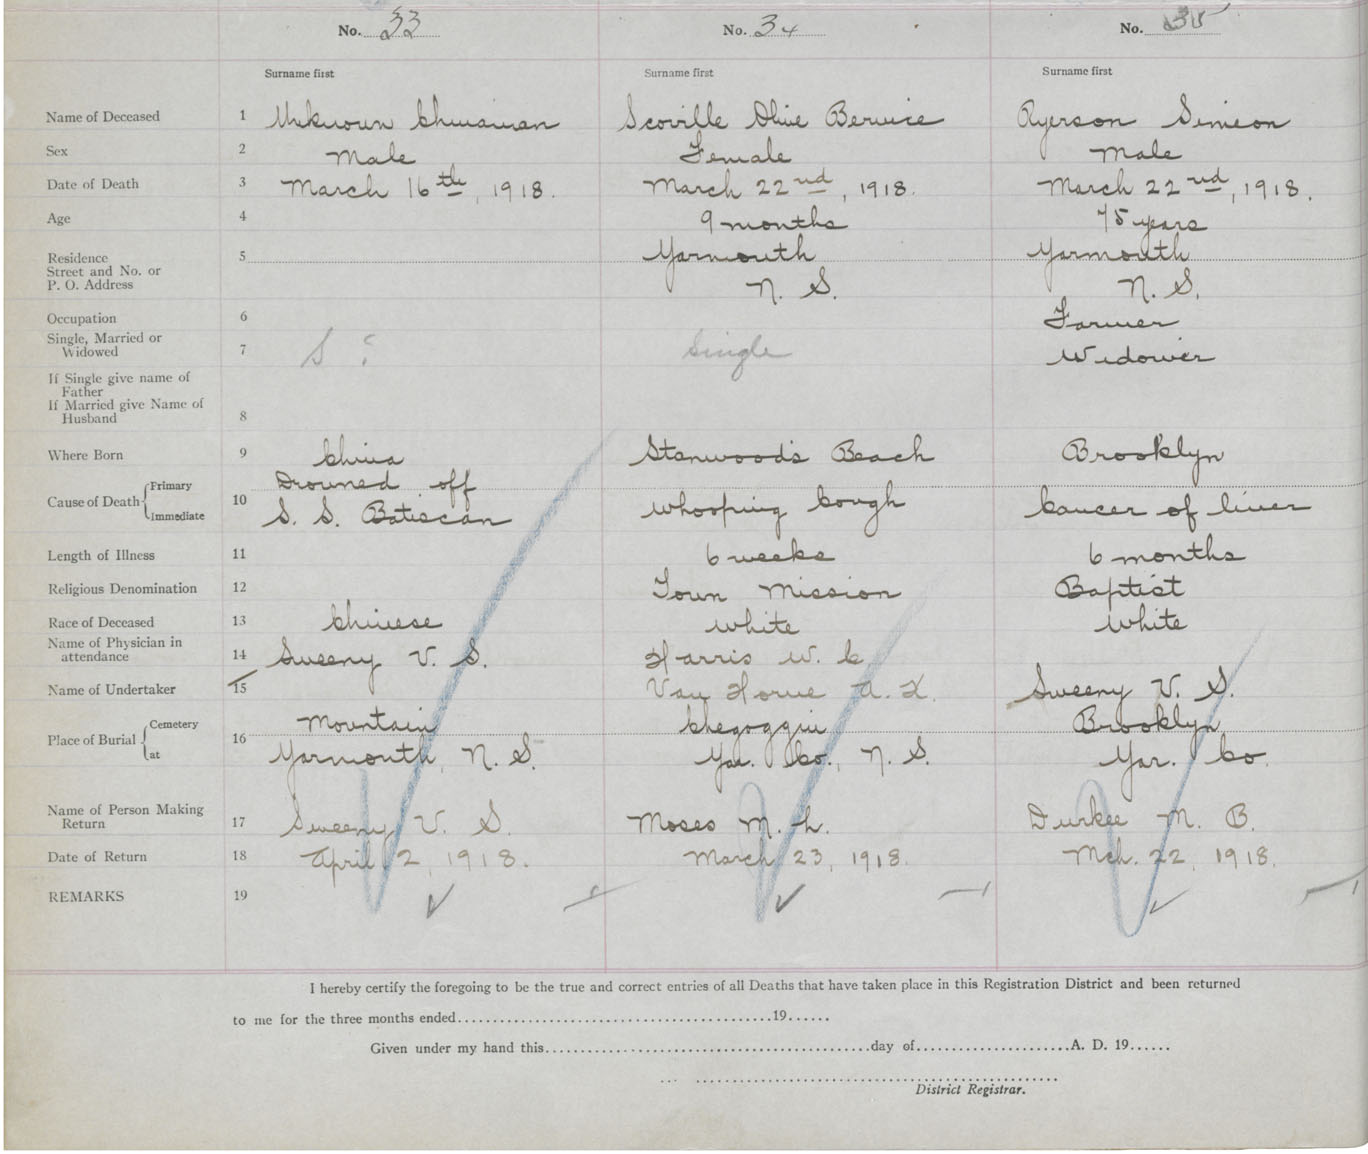 No. 33 No. 34 No. 35
Surname first Surname first Surname first
Name of Deceased 1 Unknown Chinaman Scoville Olive Bernice Ryerson Simeon
Sex 2 Male Female Male
Date of Death 3 March 16th, 1918. March 22nd, 1918. March 22nd, 1918.
Age 4 9 months 75 years
Residence 5 Yarmouth Yarmouth
Street and No. or
P. O. Address N. S. N. S.
Occupation 6 Farmer
Single, Married or
Widowed 7 S ? Single Widower
If Single give name of
Father
If Married give Name of
Husband 8
Where Born 9 China Stanwood's Beach Brooklyn
Cause of Death Primary Drowned off
Immediate 10 S. S. Batiscan Whooping Cough Cancer of liver
Length of Illness 11 6 weeks 6 months
Religious Denomination 12 Town Mission Baptist
Race of Deceased 13 Chinese White White
Name of Physician in
attendance 14 Sweeny V. S. Harris W. C.
Name of Undertaker 15 Van Horne A. K. Sweeny V. S.
Place of Burial Cemetery 16 Mountain Chegoggin Brooklyn
at Yarmouth, N. S. Yar. Co., N. S. Yar. Co.
Name of Person Making
Return 17 Sweeny V. S. Moses M. L. Durkee M. B.
Date of Return 18 April 2, 1918. March 23, 1918. Mch. 22, 1918.
REMARKS 19
I hereby certify the foregoing to be the true and correct entries of all Deaths that have taken place in this Registration District and been returned
to me for the three months ended..........19......
Given under my hand this..........day of..........A. D. 19......
District Registrar.